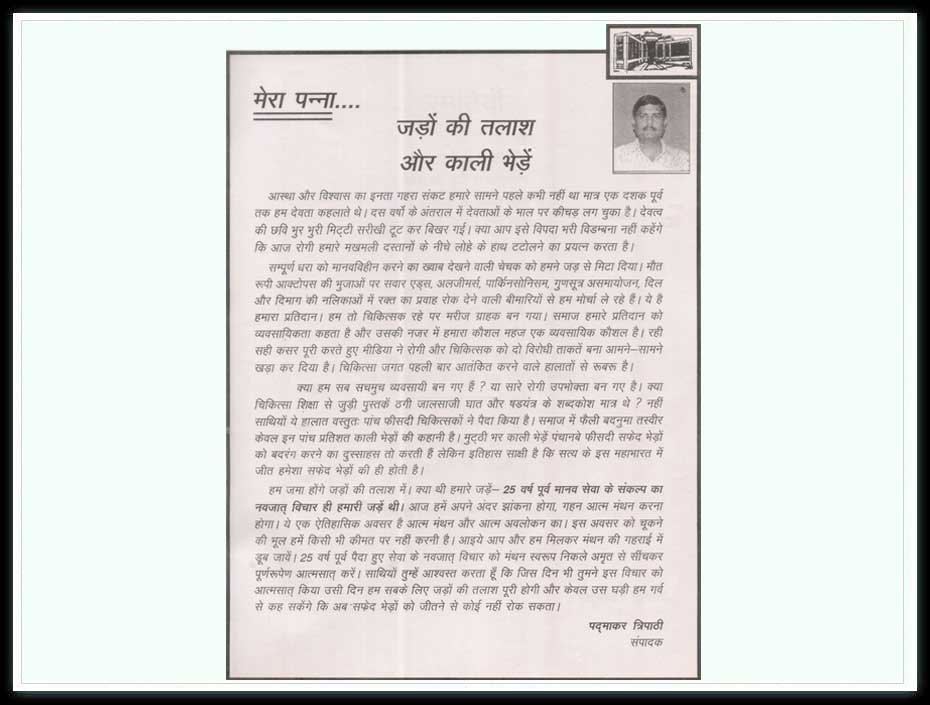 मेरा पन्ना....
जड़ों की तलाश
और काली भेड़ें
आस्था और विश्वास का इनता गहरा संकट हमारे सामने पहले कभी नहीं था मात्र एक दशक पूर्व
तक हम देवता कहलाते थे। दस वर्षो के अंतराल में देवताओं के भाल पर कीचड़ लग चुका है। देवत्व
की छवि भुर भुरी मिट्टी सरीखी टूट कर बिखर गई। क्या आप इसे विपदा भरी विडम्बना नहीं कहेंगे
कि आज रोगी हमारे मखमली दस्तानों के नीचे लोहे के हाथ टटोलने का प्रयत्न करता है।
सम्पूर्ण धरा को मानवविहीन करने का ख्वाब देखने वाली चेचक को हमने जड़ से मिटा दिया। मौत
रूपी आक्टोपस की भुजाओं पर सवार एड्स, अलजीमर्स, पार्किनसोनिसम, गुणसूत्र असमायोजन, दिल
और दिमाग की नलिकाओं में रक्त का प्रवाह रोक देने वाली बीमारियों से हम मोर्चा ले रहे हैं। ये है
हमारा प्रतिदान। हम तो चिकित्सक रहे पर मरीज ग्राहक बन गया। समाज हमारे प्रतिदान को
व्यवसायिकता कहता है और उसकी नजर में हमारा कौशल महज एक व्यवसायिक कौशल है। रही
सही कसर पूरी करते हुए मीडिया ने रोगी और चिकित्सक को दो विरोधी ताकतें बना आमने–सामने
खड़ा कर दिया है। चिकित्सा जगत पहली बार आतंकित करने वाले हालातों से रूबरू है।
क्या हम सब सचमुच व्यवसायी बन गए हैं ? या सारे रोगी उपभोक्ता बन गए है। क्या
चिकित्सा शिक्षा से जुड़ी पुस्तकें ठगी जालसाजी घात और षडयंत्र के शब्दकोश मात्र थे ? नहीं
साथियों ये हालात वस्तुतः पांच फीसदी चिकित्सकों ने पैदा किया है। समाज में फैली बदनुमा तस्वीर
केवल इन पांच प्रतिशत काली भेड़ों की कहानी है। मुट्ठी भर काली भेड़ें पंचानबे फीसदी सफेद भेड़ों
को बदरंग करने का दुस्साहस तो करती हैं लेकिन इतिहास साक्षी है कि सत्य के इस महाभारत में
जीत हमेशा सफेद भेड़ों की ही होती है।
हम जमा होंगे जड़ों की तलाश में। क्या थी हमारे जड़ें– 25 वर्ष पूर्व मानव सेवा के संकल्प का
नवजात् विचार ही हमारी जड़ें थी। आज हमें अपने अंदर झांकना होगा, गहन आत्म मंथन करना
होगा। ये एक ऐतिहासिक अवसर है आत्म मंथन और आत्म अवलोकन का। इस अवसर को चूकने
की भूल हमें किसी भी कीमत पर नहीं करनी है। आइये आप और हम मिलकर मंथन की गहराई में
डूब जावें। 25 वर्ष पूर्व पैदा हुए सेवा के नवजात् विचार को मंथन स्वरूप निकले अमृत से सींचकर
पूर्णरूपेण आत्मसात् करें। साथियों तुम्हें आश्वस्त करता हूँ कि जिस दिन भी तुमने इस विचार को
आत्मसात् किया उसी दिन हम सबके लिए जड़ों की तलाश पूरी होगी और केवल उस घड़ी हम गर्व
से कह सकेंगे कि अब सफेद भेड़ों को जीतने से कोई नहीं रोक सकता।
पद्माकर त्रिपाठी
संपादक